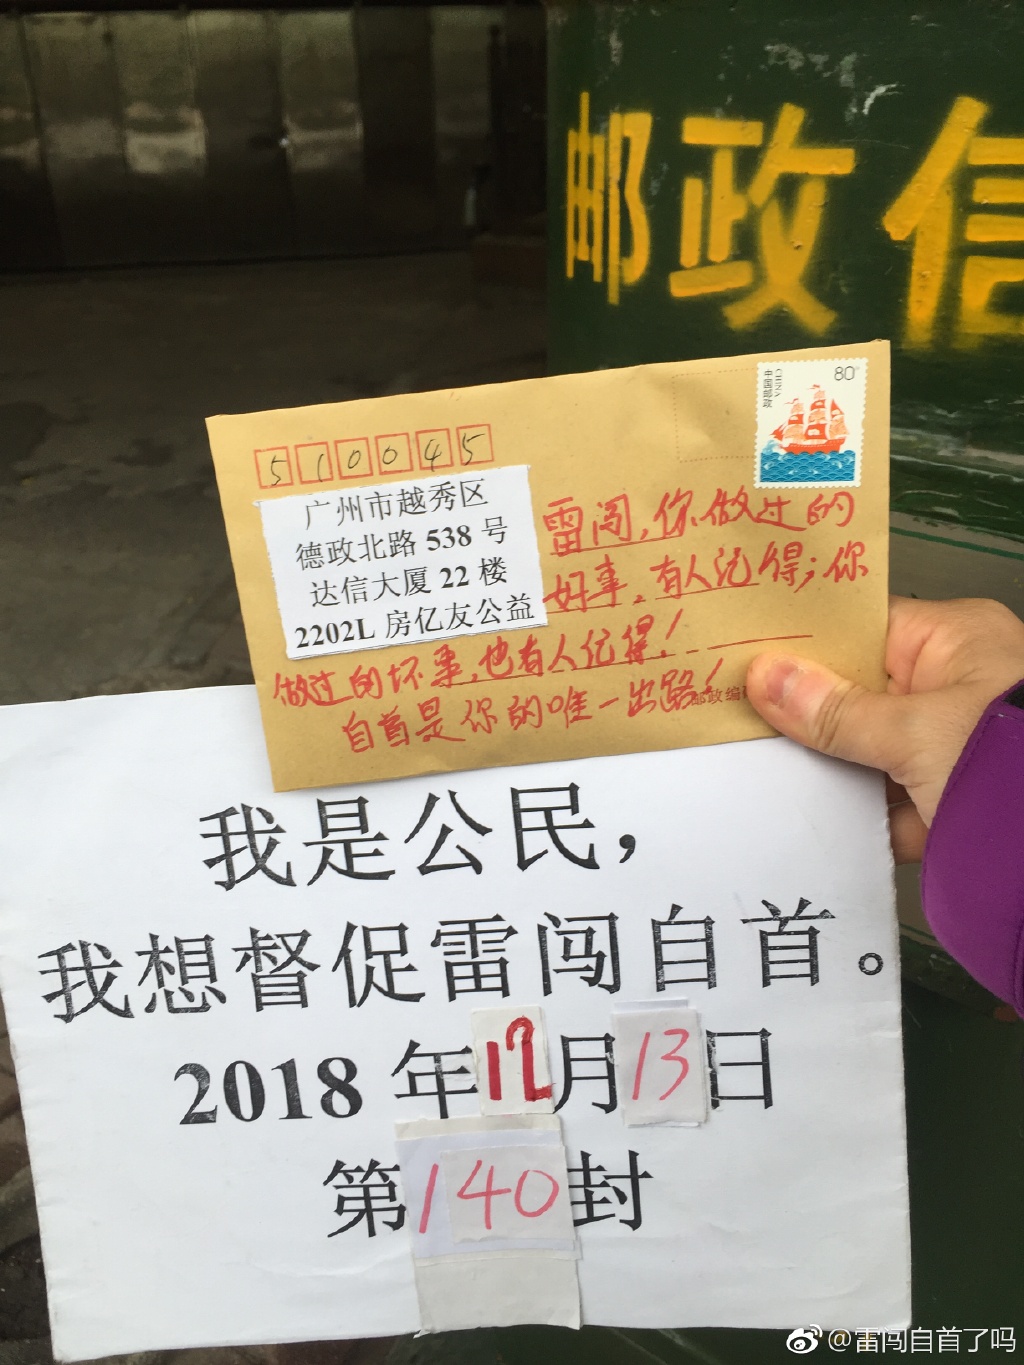 邮政信
中国邮政
CHINA
80
510045
广州市越秀区
德政北路 538 号
达信大厦 22 楼
2202L 房亿友公益
雷闯,你做过的
好事,有人记得;你
做过的坏事,也有人记得!
自首是你的唯一出路!
邮政编
我是公民,
我想督促雷闯自首。
2018 年 12 月 13 日
第 140 封
@雷闯自首了吗